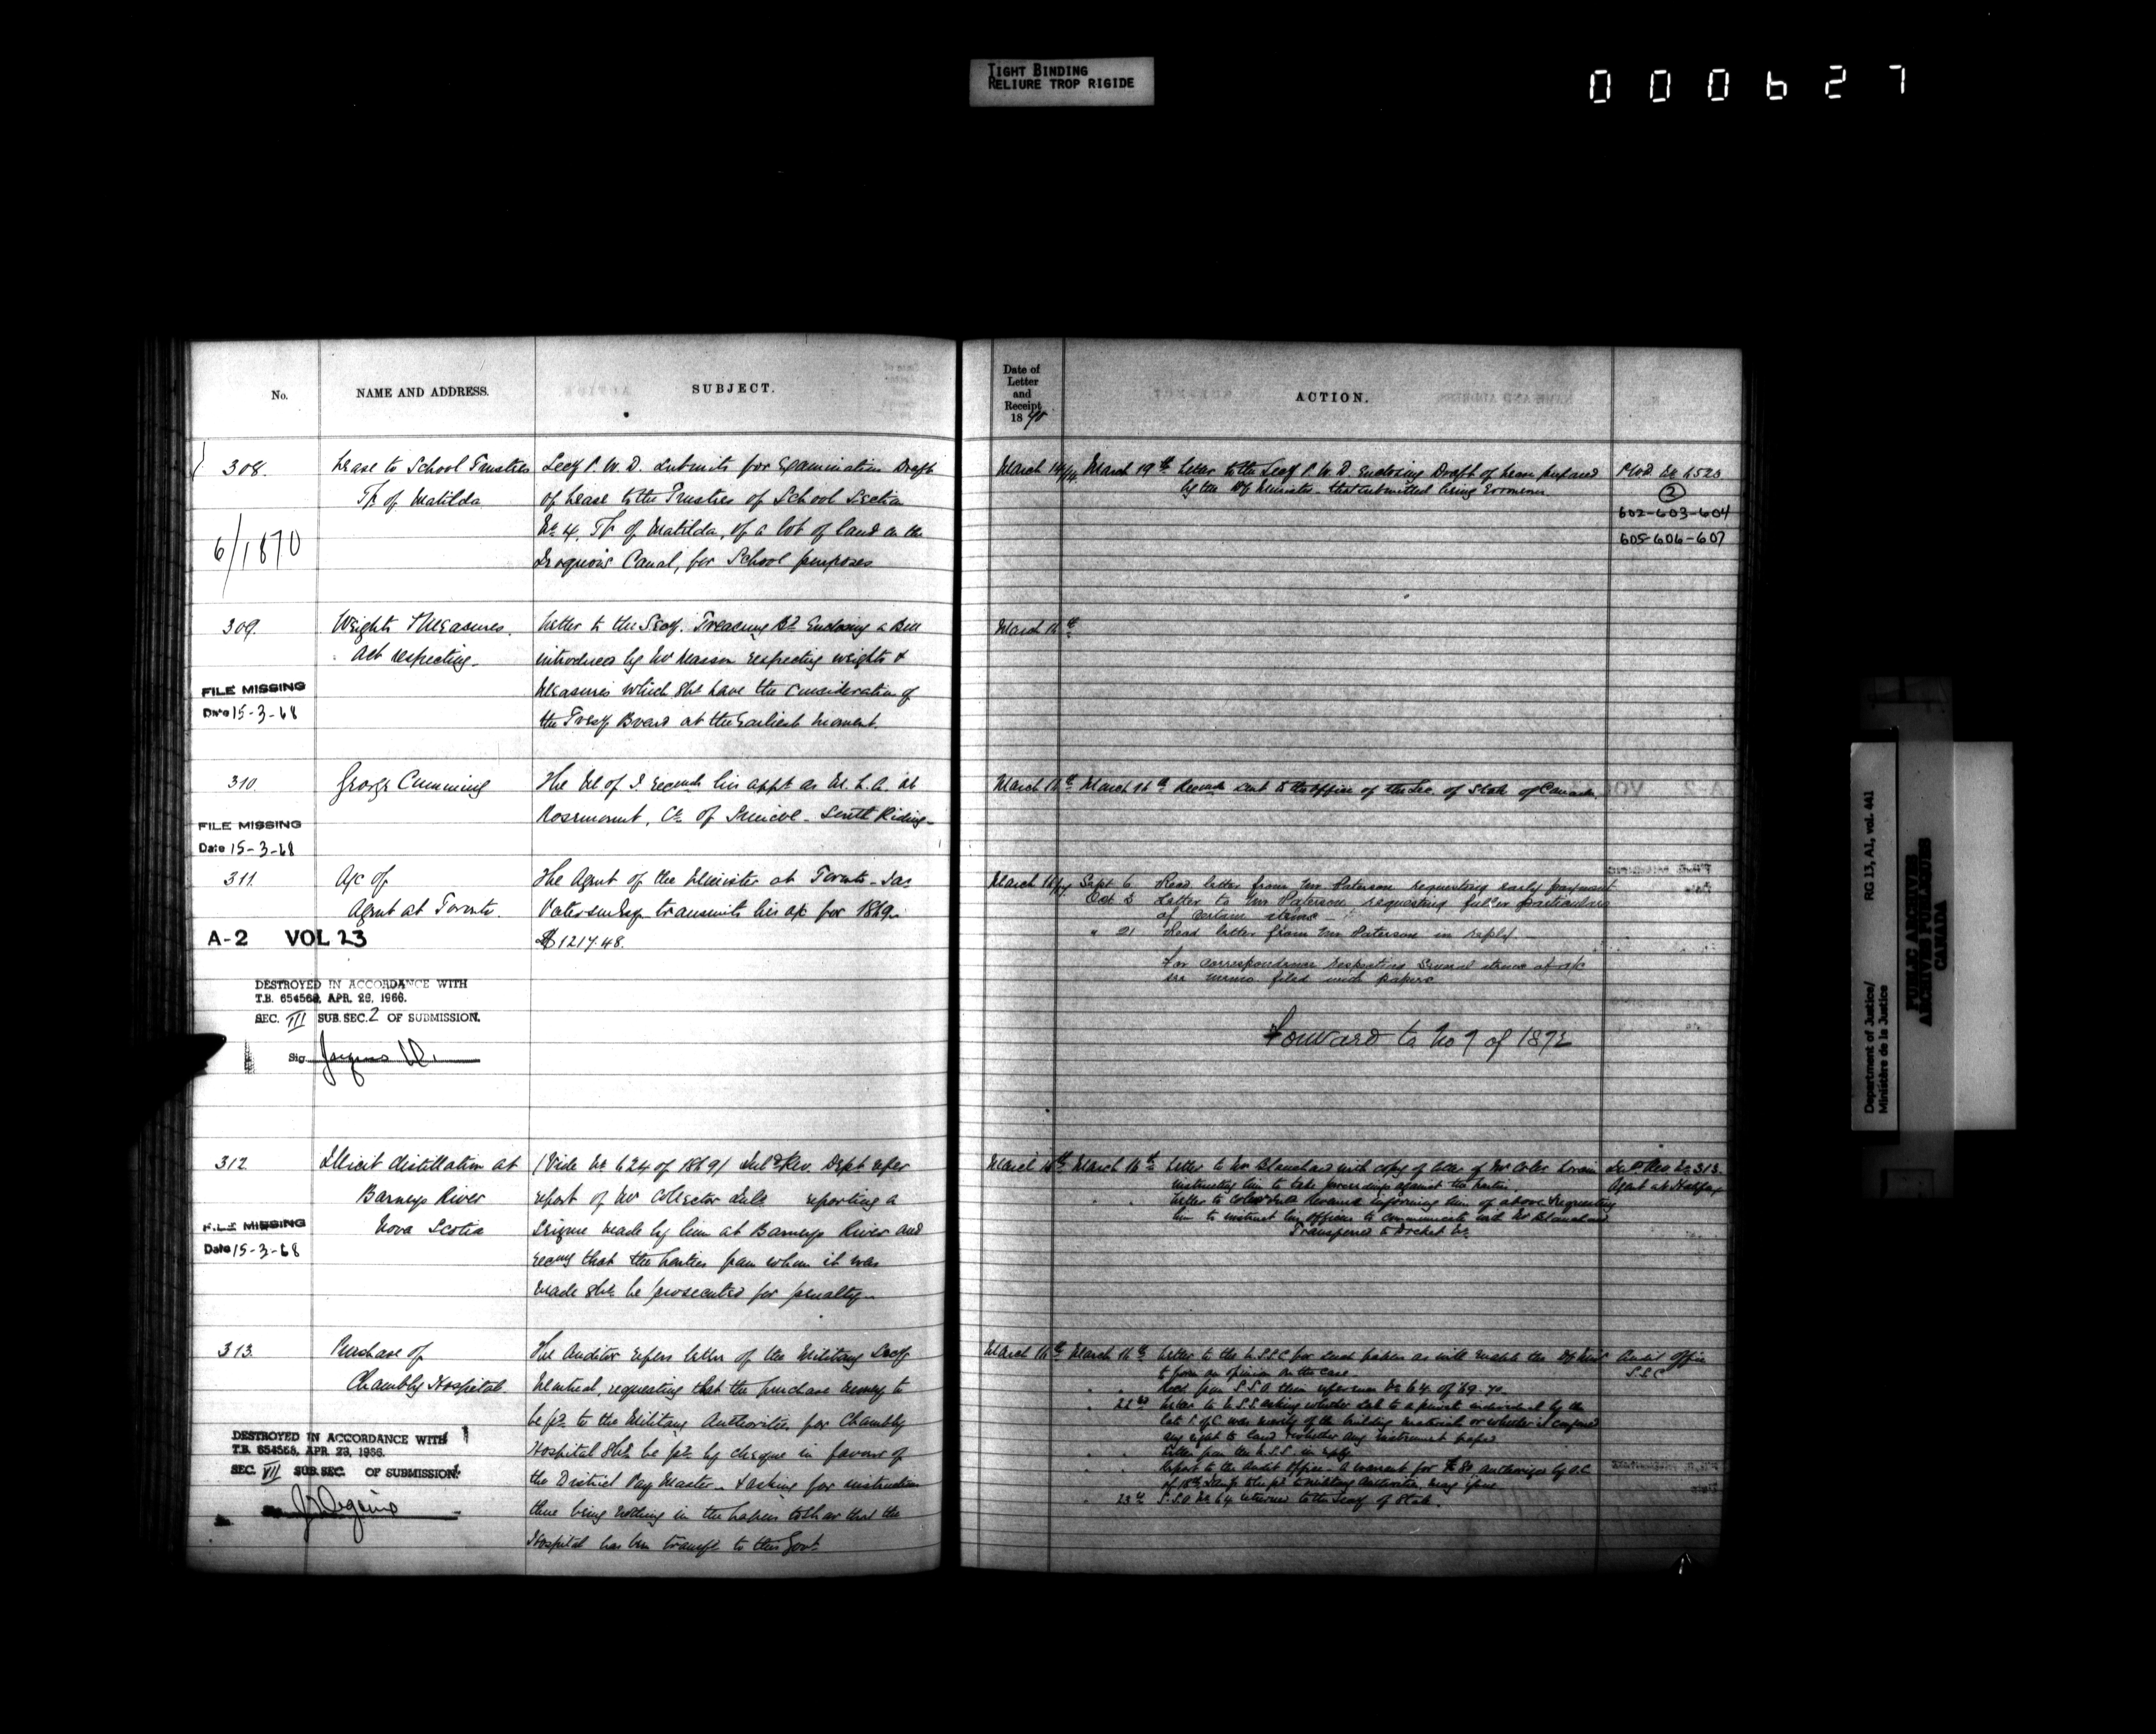 TIGHT BINDING
RELIURE TROP RIGIDE
000627
No.
NAME AND ADDRESS.
SUBJECT.
Date of
Letter
and
Receipt
1870
ACTION.
308.
Lease to School Trustees
Tp. of Matilda
6/1870
Secy P. W. D. submits for Examination Draft
of Lease to the Trustees of School Section
No 4, Tp of Matilda, of a lot of land on the
Iroquois Canal, for School purposes
March 14/14.
March 19th Letter to the Secy P. W. D. Enclosing Draft of Lease prepared
by the Dy Minister - that submitted being Erroneous.
2
602-603-604
605-606-607
309.
Weights & Measures.
Act respecting.
FILE MISSING
Date 15-3-68
Letter to the Secy. Treasury Bd Enclosing a Bill
introduced by Mr Masson respecting weights &
Measures which shd have the Consideration of
the Tresy Board at the Earliest moment.
March 16th
310.
George Cumming
FILE MISSING
Date 15-3-68
The M of J recomds his appt as M. L. A. at
Rosemount, Co. of Simcoe - South Riding -
March 16th March 16th Recomdn sent to the Office of the Sec. of State of Canada
311.
A/c of
Agent at Toronto.
A-2 VOL 23
DESTROYED IN ACCORDANCE WITH
T.B. 654568, APR. 28, 1966.
SEC. III SUB. SEC. 2 OF SUBMISSION.
Sig
The Agent of the Minister at Toronto - Jas
Paterson Esqr transmits his a/c for 1869.
$1217.48.
March 16/17
Sept 6 Read. letter from Mr. Paterson requesting early payment
Oct 3 Letter to Mr Paterson requesting fuller particulars
of certain items -
" 21 Read letter from Mr Paterson in reply. -
For correspondence respecting several items of a/c
see memo filed with papers
Forward to No 7 of 1872
312
Illicit distillation at
Barneys River
Nova Scotia
FILE MISSING
Date 15-3-68
(Vide No 624 of 1869) Inld Rev. Dept refer
report of Mr Collector reporting a
Seizure made by him at Barneys River and
recomg that the parties from whom it was
made shd be prosecuted for penalty -
March 16th March 16th Letter to Mr Blanchard with copy of letter of Mr
instructing him to take proceedings against the parties.
Letter to Inld Revenue informing him of above & requesting
him to instruct his officer to communicate with Mr Blanchard
Transferred to Docket &c
Inld Rev No 313.
Agent at Halifax
313.
Purchase of
Chambly Hospital.
DESTROYED IN ACCORDANCE WITH
T.B. 654568, APR. 28, 1966.
SEC. VII SUB. SEC. OF SUBMISSION.
The Auditor refers letter of the Military Secy
Montreal, requesting that the purchase money to
be pd to the Military Authorities, for Chambly
Hospital shd be pd by cheque in favour of
the District Pay Master - & asking for instruction
there being nothing in the papers to show that the
Hospital has been transfd to this Govt.
March 16th March 16th Letter to the U.S.S.C for such papers as will enable the Dy Minr
to form an opinion on the case
Recd from S.S.O. their reference No 64 of 69-70
22nd Letter to U.S.S. asking whether sale to a private individual by the
was merely of the building material or whether it conferred
any right to land & whether any instrument passed
Letter from the U.S.S. in reply
Report to the Audit Office - a warrant for $80 authorized by O.C.
23rd S.S.O No 64 returned to the Secy of State.
Audit Office
S.S.C
Department of Justice/
Ministère de la Justice
RG 13, A1, vol. 441
PUBLIC ARCHIVES
ARCHIVES PUBLIQUES
CANADA